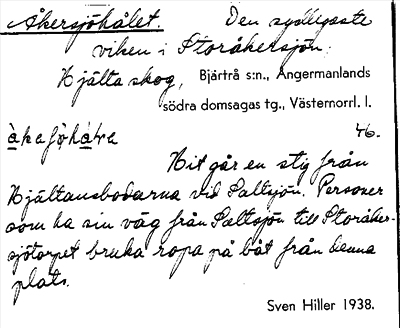 Åkersjöhålet. Den sydligaste
viken i Storåkersjön.
Hjälta skog, Bjärtrå s:n., Ångermanlands
södra domsagas tg., Västernorrl. l.
46.
Hit går en stig från
Hjältansbodarna vid Saltsjön. Personer
som ha sin väg från Saltsjön till Storåker-
sjötorpet bruka ropa på båt från denna
plats.
Sven Hiller 1938.